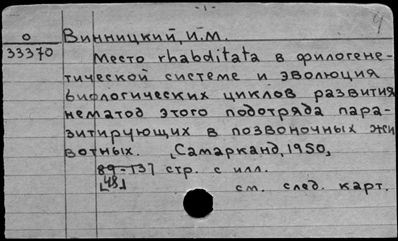 - 1 -
4
О Винницкий, И.М.
33370 Место rhabditata в филогене-
тической системе и эволюция
биологических циклов развития
нематод этого подотряда пара-
зитирующих в позвоночных жи
вотных. [Самарканд, 1950,]
89-137 стр. с илл.
[48]
см. след. карт.